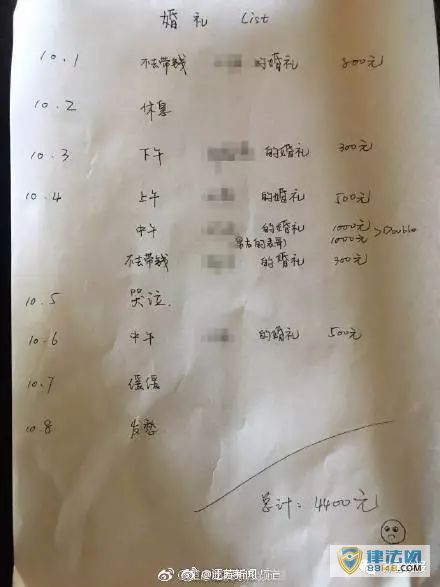 婚礼 List
10.1 不去带钱 的婚礼 800元
10.2 休息
10.3 下午 的婚礼 300元
10.4 上午 的婚礼 500元
中午 的婚礼 1000元
1000元 >Double
不去带钱 的婚礼 300元
10.5 哭泣.
10.6 中午 的婚礼 500元
10.7 缓缓
10.8 发愁
总计: 4400元
律法网
88148.com